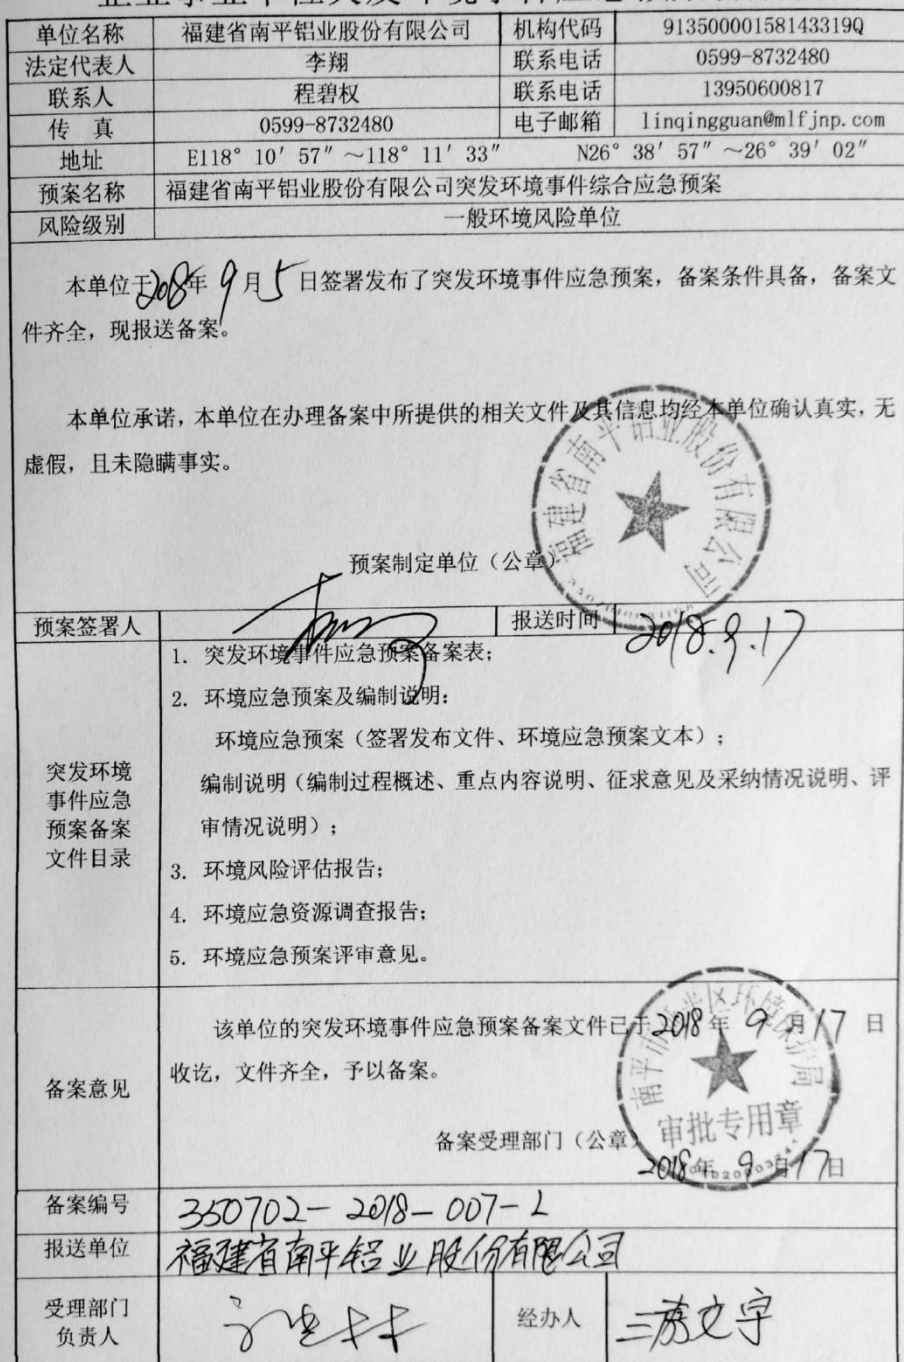 单位名称 福建省南平铝业股份有限公司 机构代码 91350000158143319Q
法定代表人 李翔 联系电话 0599-8732480
联系人 程碧权 联系电话 13950600817
传 真 0599-8732480 电子邮箱 linqingguan@mlfjnp.com
地址 E118° 10′ 57″ ～118° 11′ 33″ N26° 38′ 57″ ～26° 39′ 02″
预案名称 福建省南平铝业股份有限公司突发环境事件综合应急预案
风险级别 一般环境风险单位
本单位于2018年9月5日签署发布了突发环境事件应急预案，备案条件具备，备案文
件齐全，现报送备案。
本单位承诺，本单位在办理备案中所提供的相关文件及其信息均经本单位确认真实，无
虚假，且未隐瞒事实。
福建省南平铝业股份有限公司
预案制定单位（公章）
预案签署人 报送时间 2018.9.17
突发环境
事件应急
预案备案
文件目录
1. 突发环境事件应急预案备案表；
2. 环境应急预案及编制说明：
环境应急预案（签署发布文件、环境应急预案文本）；
编制说明（编制过程概述、重点内容说明、征求意见及采纳情况说明、评
审情况说明）；
3. 环境风险评估报告；
4. 环境应急资源调查报告；
5. 环境应急预案评审意见。
备案意见
该单位的突发环境事件应急预案备案文件已于2018年9月17日
收讫，文件齐全，予以备案。
审批专用章
备案受理部门（公章）
2018年9月17日
备案编号 350702-2018-007-L
报送单位 福建省南平铝业股份有限公司
受理部门
负责人
经办人